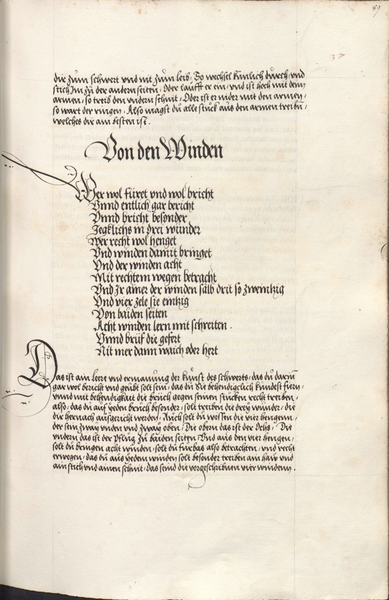 dir zům schwert vnd nit zům leib, So wechsel künlich durch vnd
stich Im zů der andern seiten, Oder laufft er ein, vnd ist hoch mit den
armen, so treib den vndern schnit, Oder ist er nider mit den armen,
so wart der ringen, Also magst dü alle stück aus den armen treibn,
welches dir am besten ist
Von den Winden
Wer wol füret vnd wol bricht
Vnnd entlich gar bericht
Vnnd bricht besonder
Jegklichs in drei wunder
Wer recht wol henget
Vnd winden damit bringet
Vnd der winden acht
Mit rechtem wegen betracht
Vnd Ir ainer der winden selb drit so zwenntzig
Vnd vier zele sie entzig
Von baiden seiten
Acht winden lern mit schreiten
Vnnd brüff die gefert
Nit mer dann waich oder hert
Das ist ain lere vnd ermanung der künst des schwerts, das dü darinn
gar wol bericht vnd geübt solt sein, das dü die behendigclich kündest fiern
vnnd mit behendigkait die brüch gegen seinen stücken recht treiben,
also, das dü aus yeden brüch besonder, solt treiben die drey wünder, die
dir hernach aüsgericht werden, Auch solt dü wol Ten die vier hengenn,
der sein zway vnden vnd zway oben, Die obern das ist der Ochs, Die
vndern das ist der Pflüg zü baiden seiten, Vnd aus den vier hengen,
solt dü bringen acht winden, solt dü fürbas also betrachten, vnd recht
erwegen, das dü aus yedem winden, solt besonder treiben am haw vnd
am stich vnd amen schnit, das send die vorgeschriben vier winden,